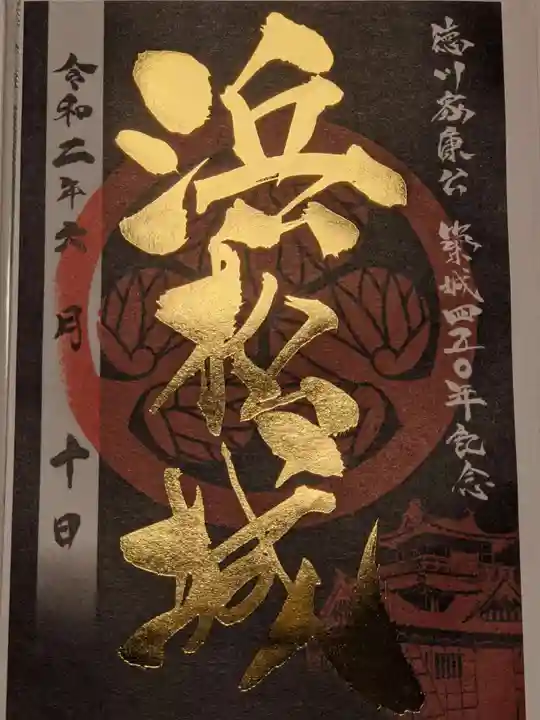 徳川家康公 築城四五〇年記念
浜松城
令和二年六月十日